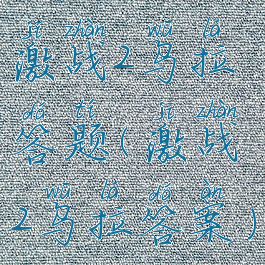 jī zhàn wū lā
激战2乌拉
dá tí jī zhàn
答题(激战
wū lā dá àn
2乌拉答案)